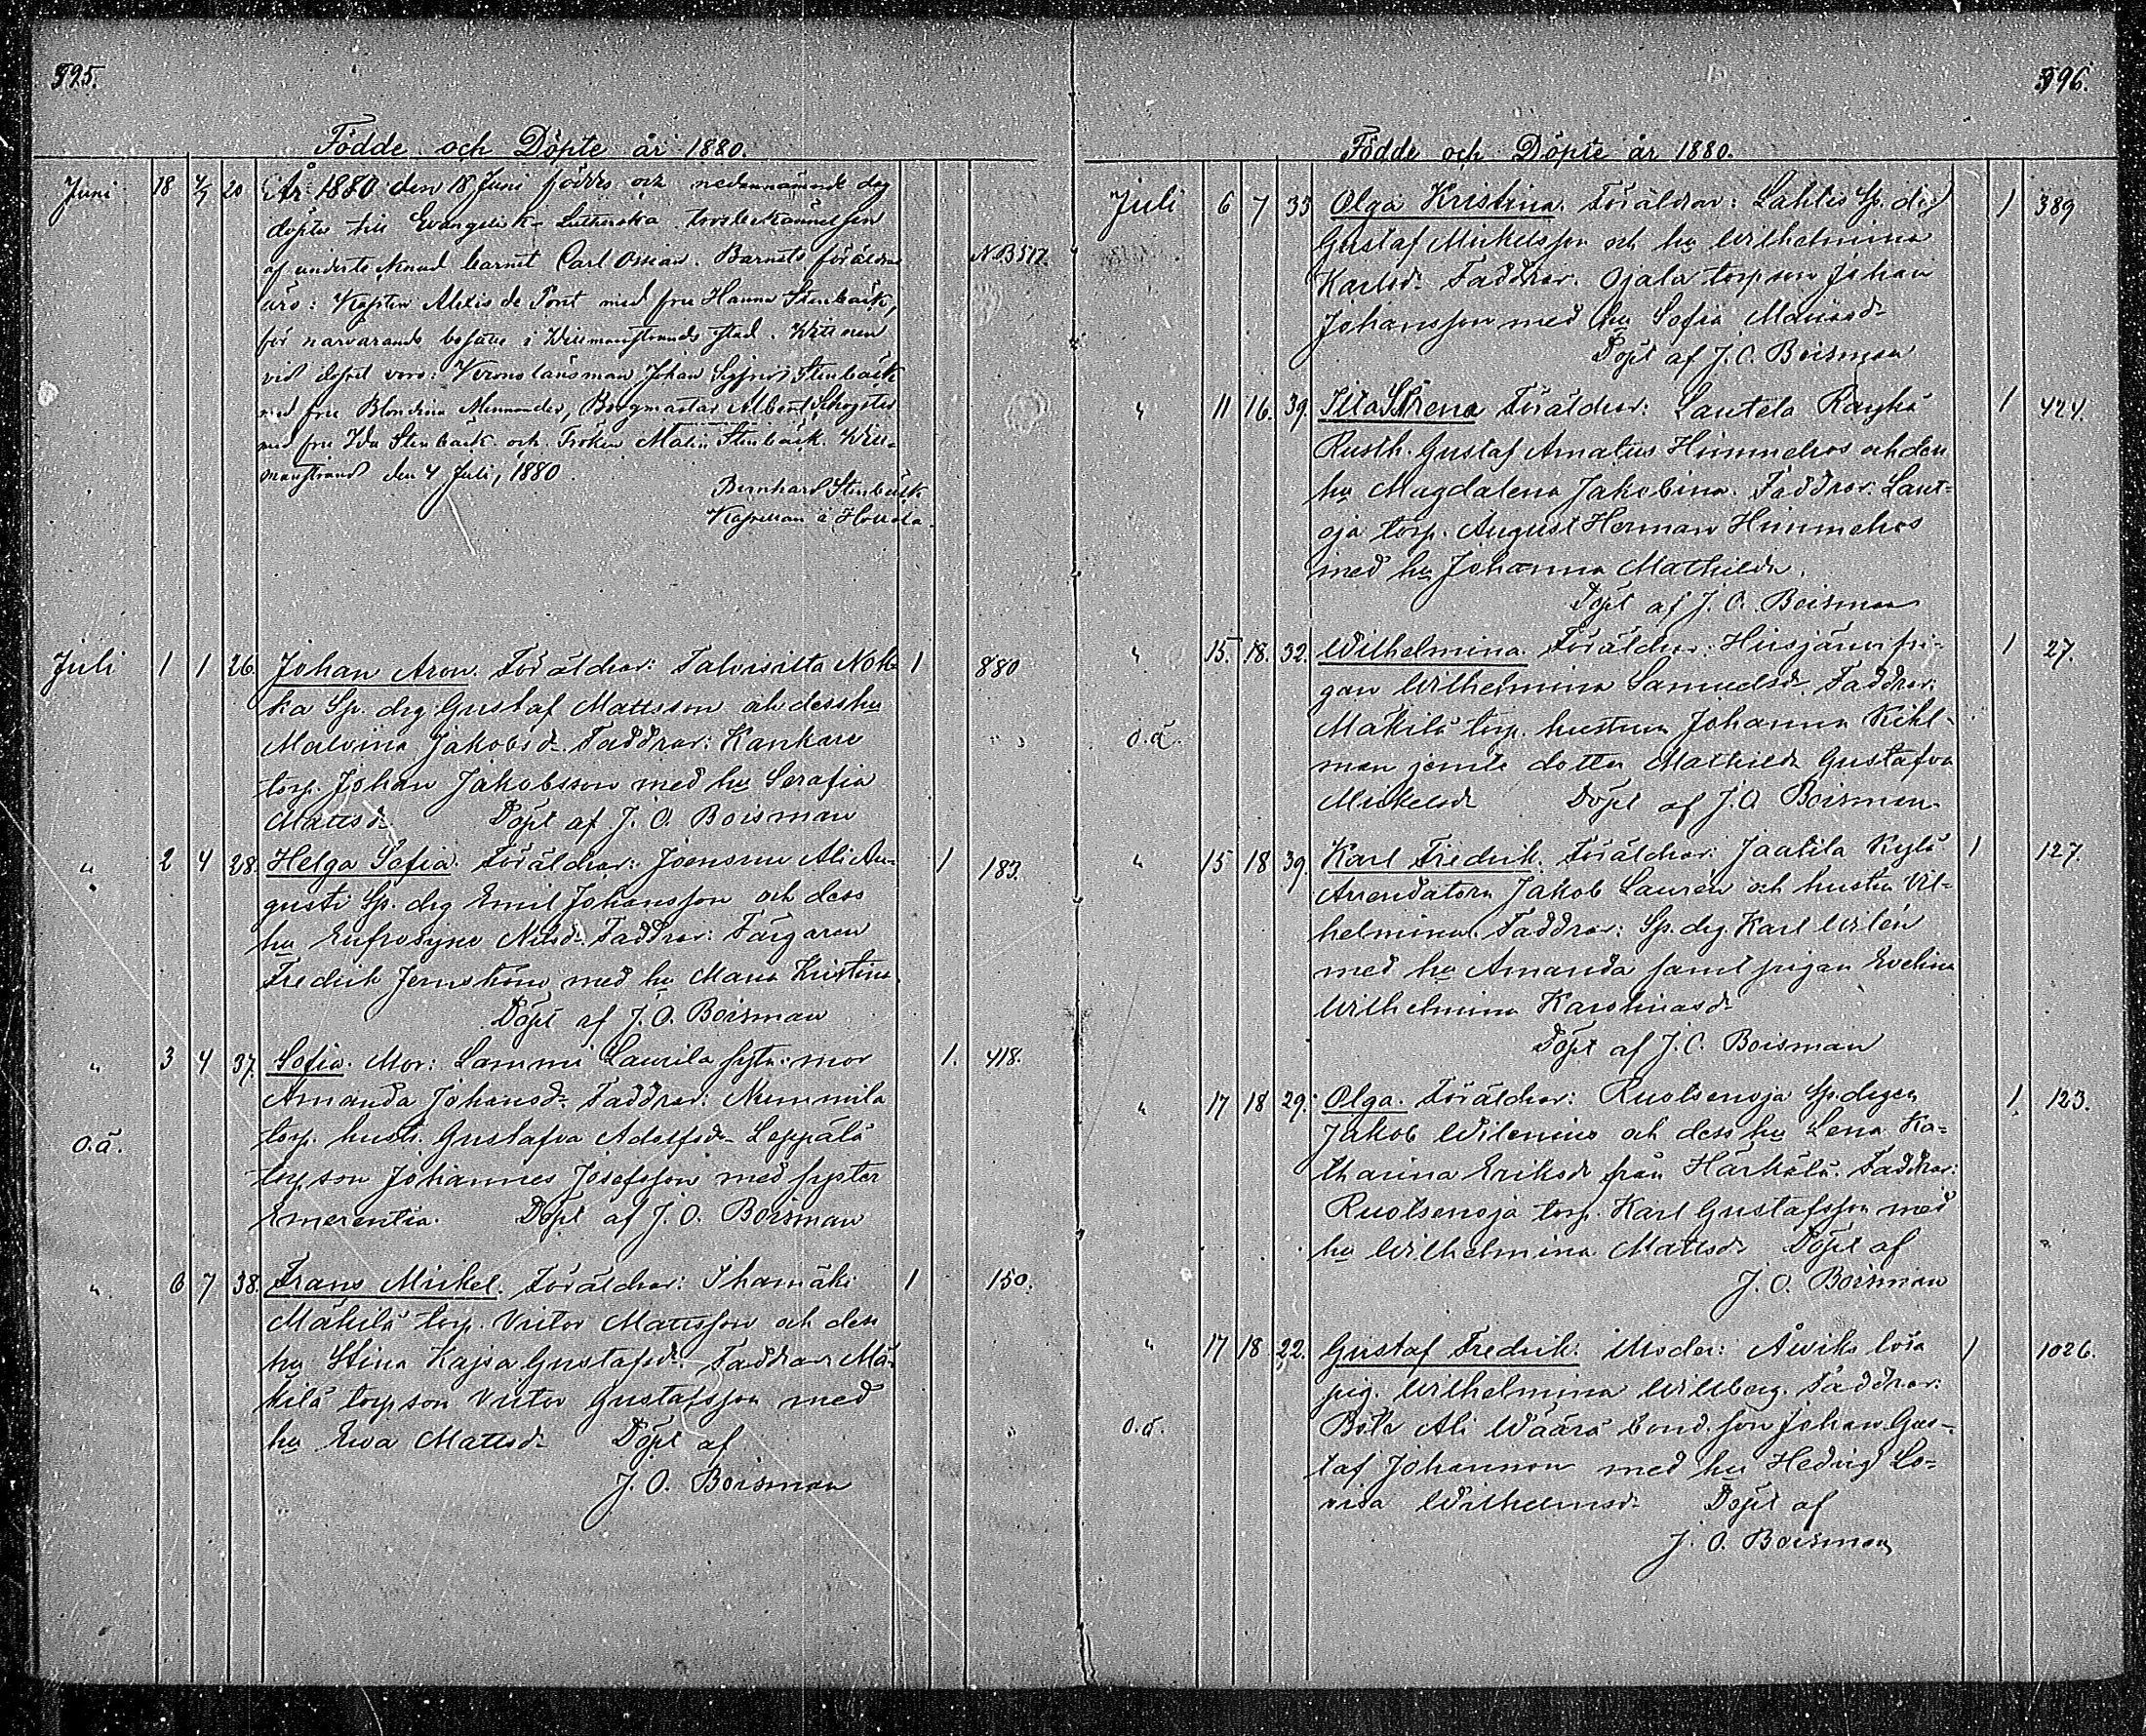 395.
Födde och Döpte år 1880.
Juni 18 4/7 20 År 1880 den 18 Juni föddes och nedannämnde dag
döptes till Evangelisk-Lutherska trosbekännelsen
af undertecknad barnet Carl Ossian. Barnets föräldrar NB 517
äro: Kapten Alexis de Pont med fru Hanna Stenbäck,
för närvarande bosatte i Willmanstrands stad. Wittnen
vid dopet voro: Kronolänsman Johan Sigfrid Stenbäck
med fru Blondina Alennander, Borgmästar Albert
med fru Ida Stenbäck och Fröken Malin Stenbäck. Will-
manstrand den 4 Juli, 1880
Bernhard Stenbäck
Kapellan i Hollola.
Juli 1 1 26. Johan Aron. Föräldrar: Talvisilta Nok- 1 880
ka Sp. drg Gustaf Mattsson och dess hu
Malvina Jakobsd. Faddrar: Kankare
torp. Johan Jakobsson med hu Serafia
Mattsd. Döpt af J. O. Boisman
" 2 4 28. Helga Sofia. Föräldrar: Joensuu Ali Au- 1 183.
gusti Sp. drg Emil Johansson och dess
hu Eufrosyne Nilsd. Faddrar: Färgaren
Fredrik Jernström med hu Maria Kristina.
Döpt af J. O. Boisman
" 3 4 37. Sofia. Mor: Lammi Laurila sytn: mor 1. 418.
Amanda Johansd. Faddrar: Nummila
o.ä. torp. hustr. Gustafva Adolfsd. Leppälä
torpson Johannes Josefsson med syster
Emerentia. Döpt af J. O. Boisman
" 6 7 38. Frans Mickel. Föräldrar: Ihamäki 1 150.
Mäkilä torp. Victor Mattsson och dess
hu Stina Kajsa Gustafsd. Faddrar Mä-
kilä torpson Victor Gustafsson med
hu Ewa Mattsd. Döpt af
J. O. Boisman
396.
Födde och Döpte år 1880.
Juli 6 7 33 Olga Kristina. Föräldrar: Lahtis Sp. drg 1 389
Gustaf Mickelsson och hu Wilhelmina
Karlsd. Faddrar. Ojala torpson Johan
Johansson med hu Sofia Mariasd.
Döpt af J. O. Boisman
" 11 16. 39. Sirena Föräldrar: Lautela 1 424.
Rusth. Gustaf Amatus Himmelros och dess
hu Magdalena Jakobina. Faddrar: Laut-
oja torp. August Herman Himmelros
med hu Johanna Mathilda.
Döpt af J. O. Boisman
" 15. 18. 32. Wilhelmina. Föräldrar: Hirsjärvi pi- 1 27.
gan Wilhelmina Samuelsd. Faddrar:
o.ä. Mäkilä torp. hustrun Johanna Kihl-
man jemte dotter Mathilda Gustafva
Mickelsd. Döpt af J. O. Boisman.
" 15 18 39. Karl Fredrik. Föräldrar: Jaatila Kylä 1 127.
Arrendatorn Jakob Lauren och hustru Vil-
helmina. Faddrar: Sp. drg Karl Wilén
med hu Amanda samt pigan Evelina
Wilhelmina Karolinasd.
Döpt af J. O. Boisman
" 17 18 29. Olga. Föräldrar: Ruolsenoja Sp. drgen 1. 123.
Jakob Wilenius och dess hu Lena Ka-
tharina Eriksd. från Härkälä. Faddrar:
Ruolsenoja torp. Karl Gustafsson med
hu Wilhelmina Mattsd. Döpt af
J. O. Boisman
" 17 18 22. Gustaf Fredrik. Moder: Åwiks lösa 1 1026.
pig. Wilhelmina Willberg. Faddrar:
o.ä. Böle Ali Wäärä bond. son Johan Gus-
taf Johansson med hu Hedvig Lo-
visa Wilhelmsd. Döpt af
J. O. Boisman